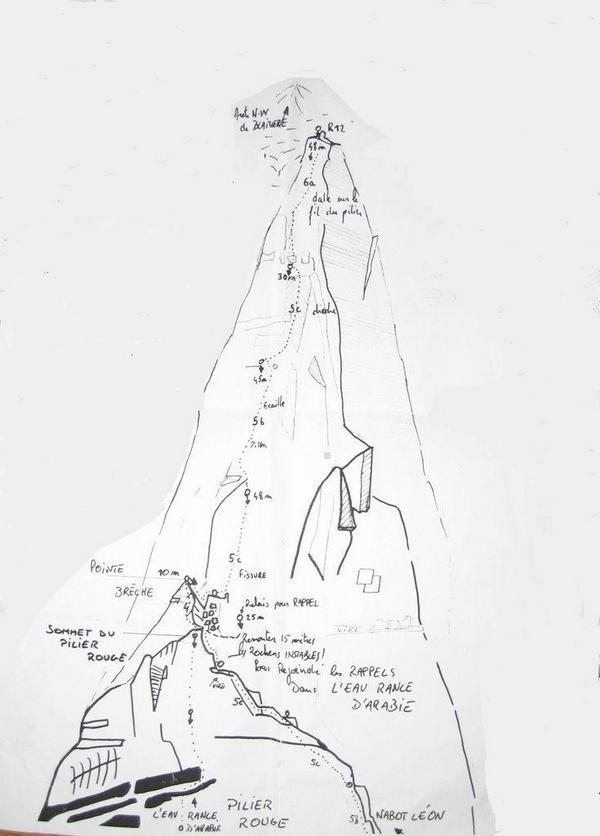 Arête N-W
de BLAITIERE
R12
48m
6a
dalle sur le
fil du pilier
30m
5c
dièdre
45m
Écaille
5b
48m
5c
FISSURE
POINTE
10m
BRÈCHE
4
Relais pour RAPPEL
25m
SOMMET DU
PILIER
ROUGE
VIRE
Remonter 15 mètres
Rochers INSTABLES!
Pour Rejoindre les RAPPELS
Dans L'EAU RANCE
D'ARABIE
5c
5c
L'EAU RANCE
D'ARABIE
PILIER
ROUGE
5b
NABOT LÉON